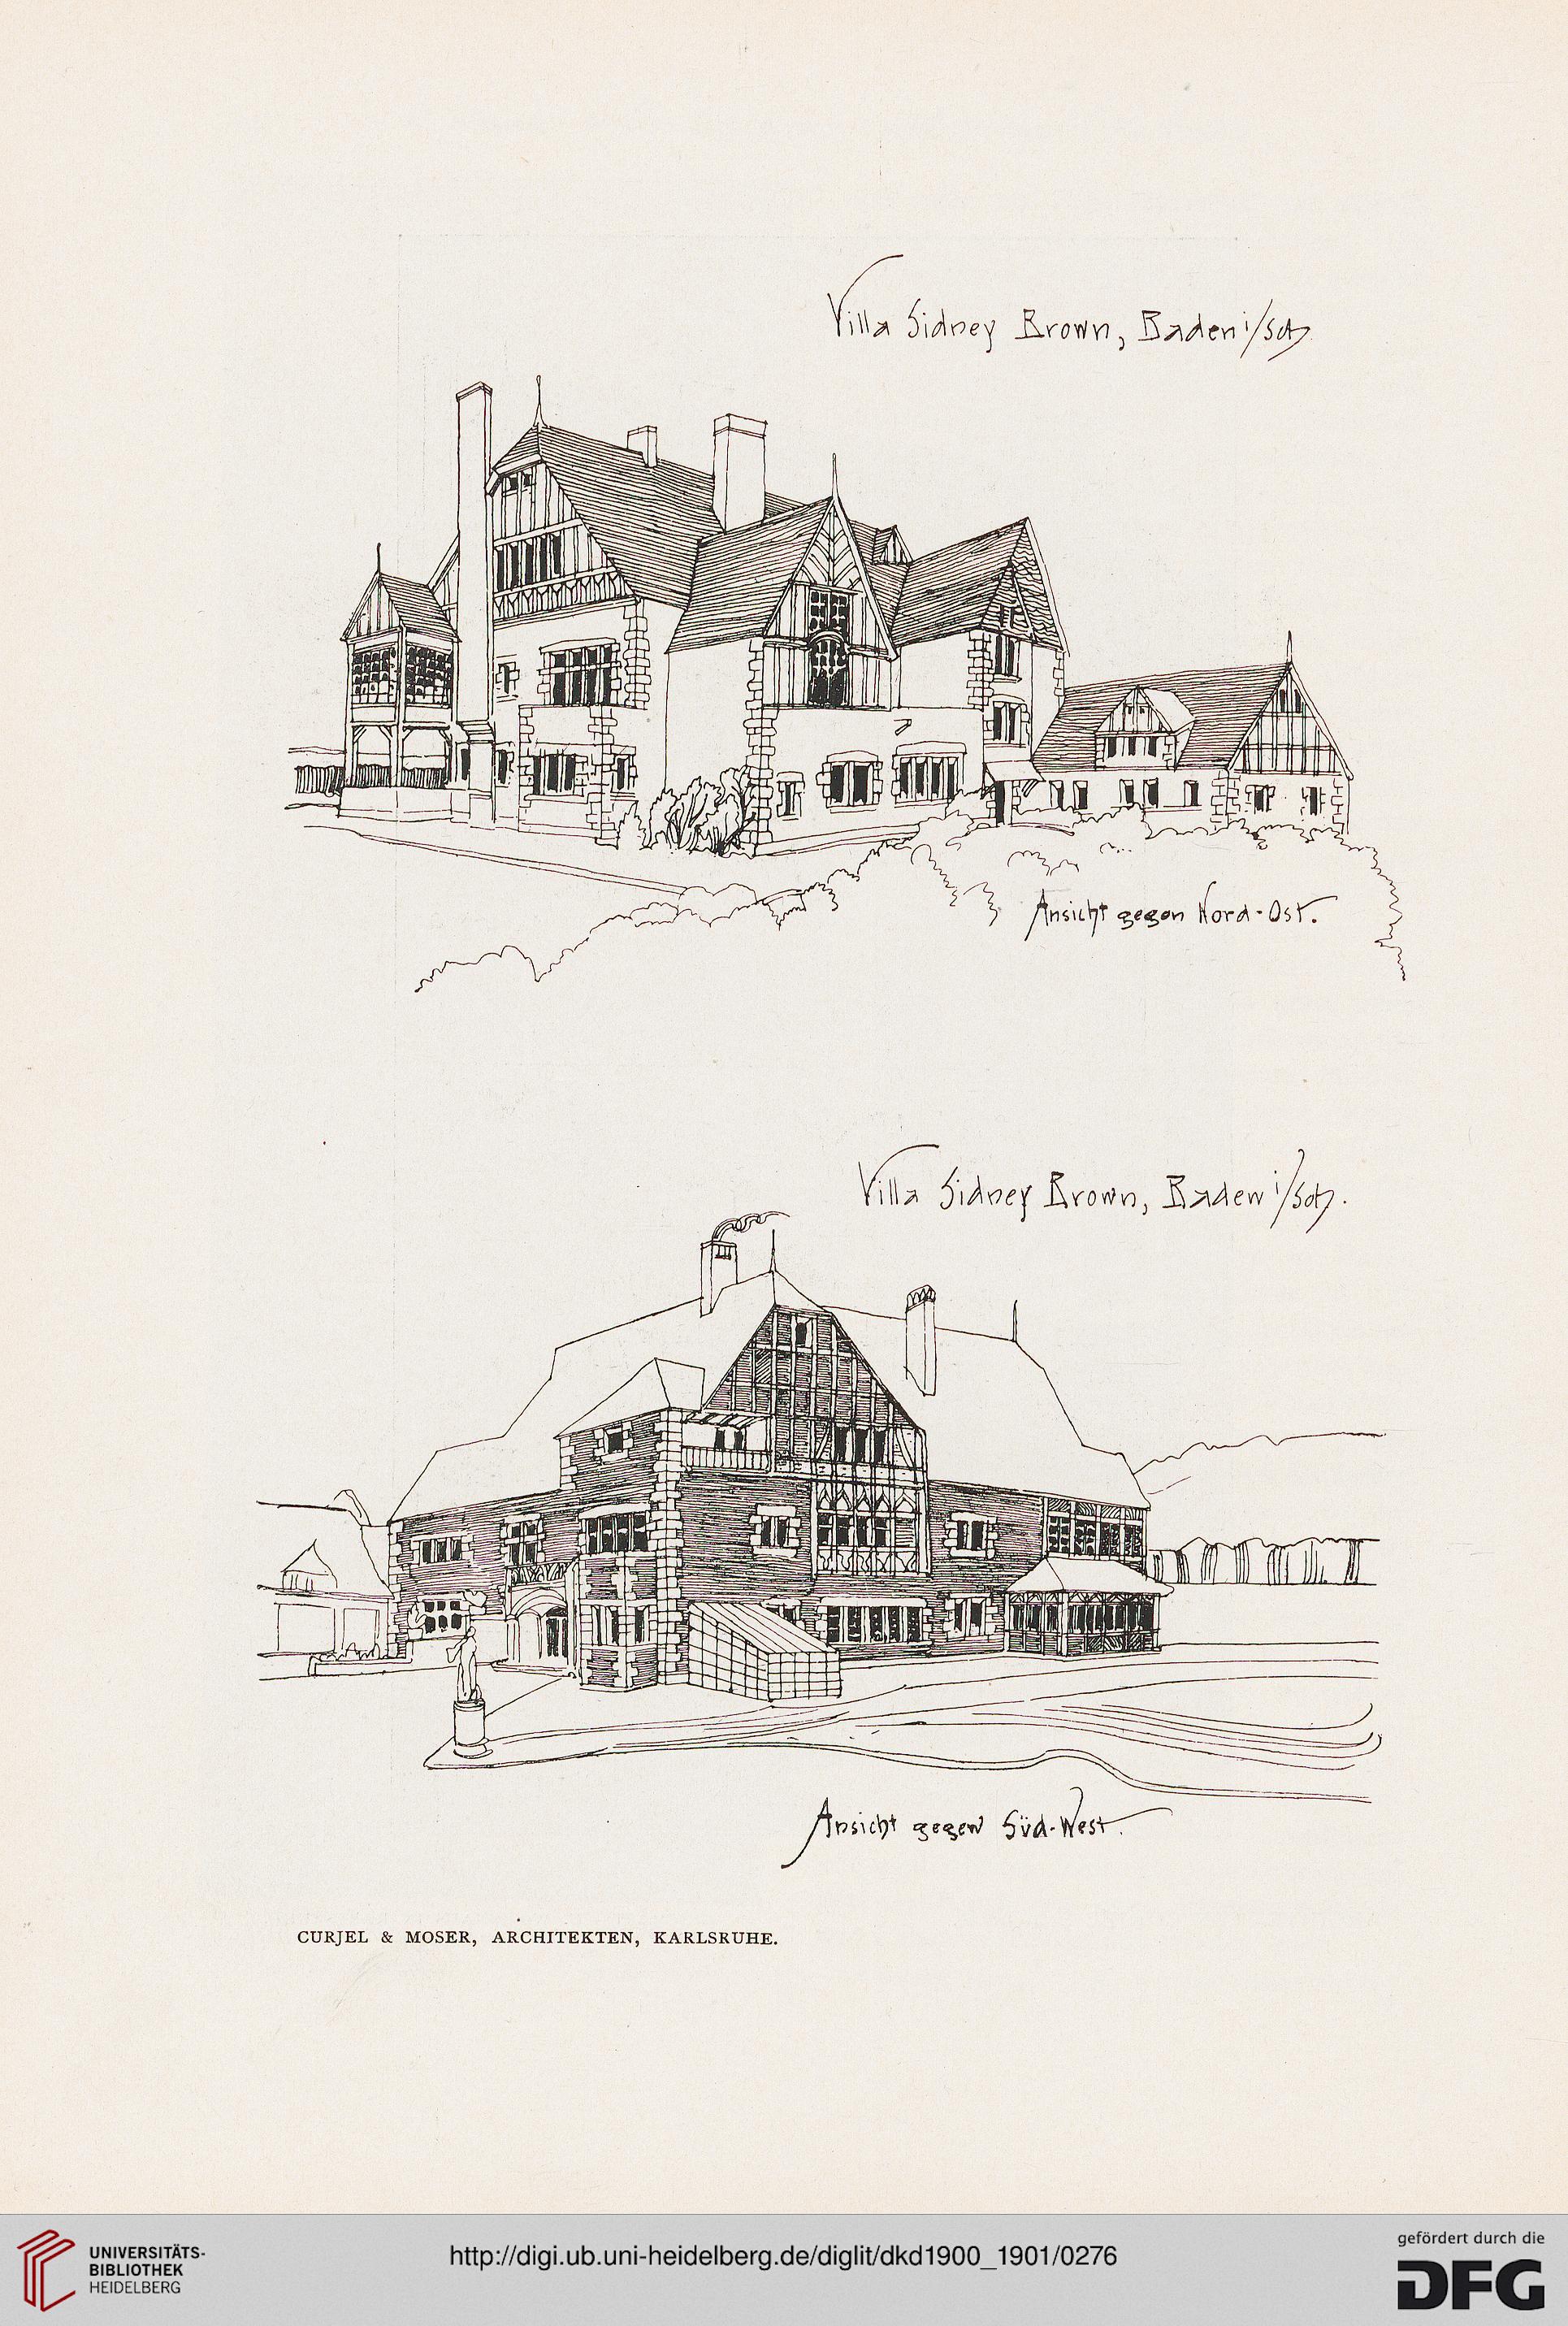 Villa Sidney Brown, Baden i/Sch
Ansicht gegen Nord-Ost.
Villa Sidney Brown, Baden i/Sch.
Ansicht gegen Süd-West.
CURJEL & MOSER, ARCHITEKTEN, KARLSRUHE.
UNIVERSITÄTS-
BIBLIOTHEK
HEIDELBERG
http://digi.ub.uni-heidelberg.de/diglit/dkd1900_1901/0276
gefördert durch die
DFG